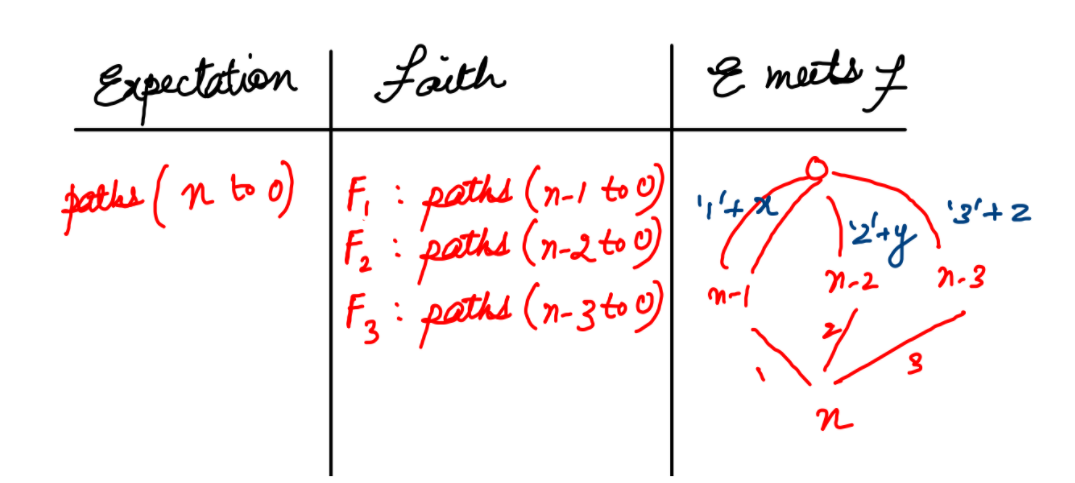 Expectation
Faith
E meets F
paths (n to 0)
F1 : paths (n-1 to 0)
F2 : paths (n-2 to 0)
F3 : paths (n-3 to 0)
0
'1'+x
'2'+y
'3'+z
n-1
n-2
n-3
1
2
3
n